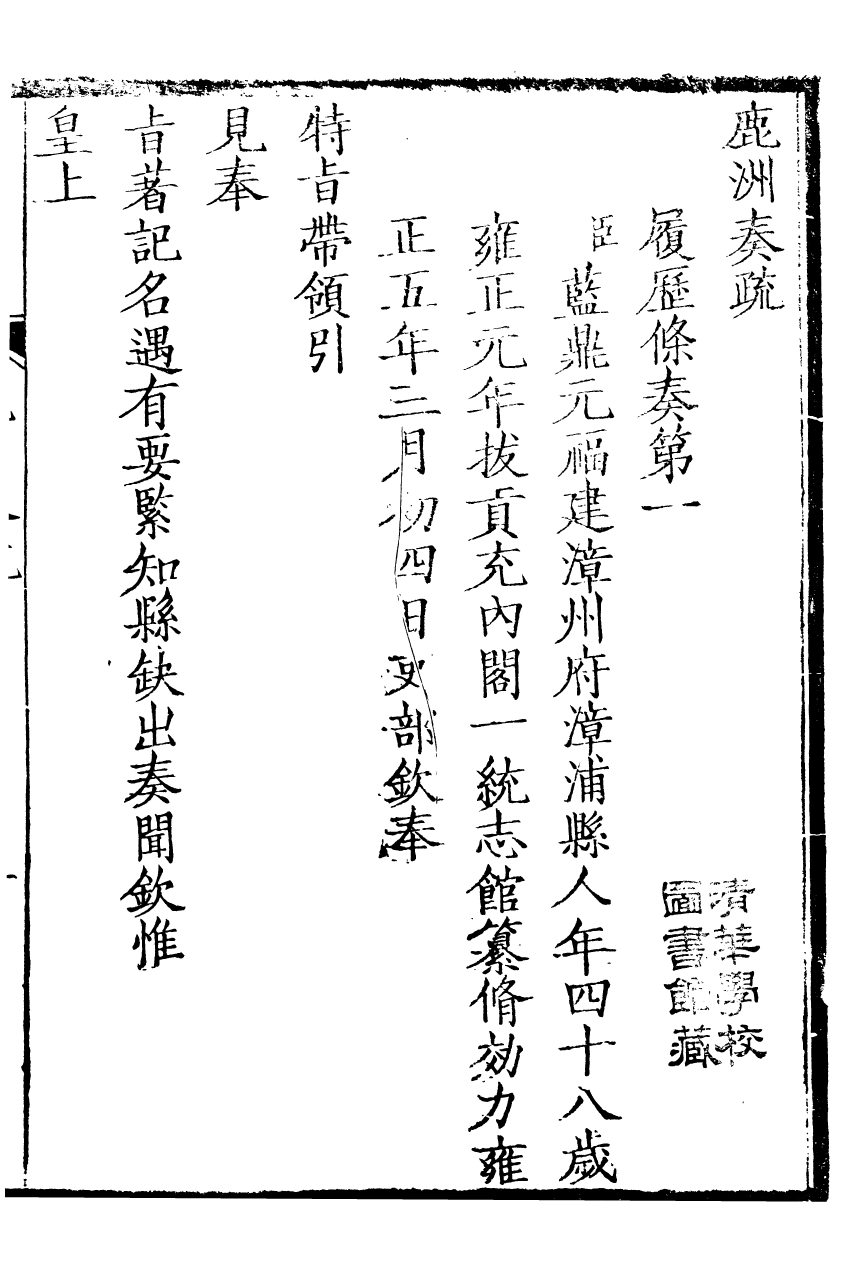 鹿洲奏疏
履歷條奏第一
臣藍鼎元福建漳州府漳浦縣人年四十八歲
雍正元年拔貢充內閣一統志館纂脩効力雍
正五年三月初四日吏部欽奉
特旨帶領引
見奉
旨著記名遇有要緊知縣缺出奏聞欽惟
皇上
清華學校
圖書館藏